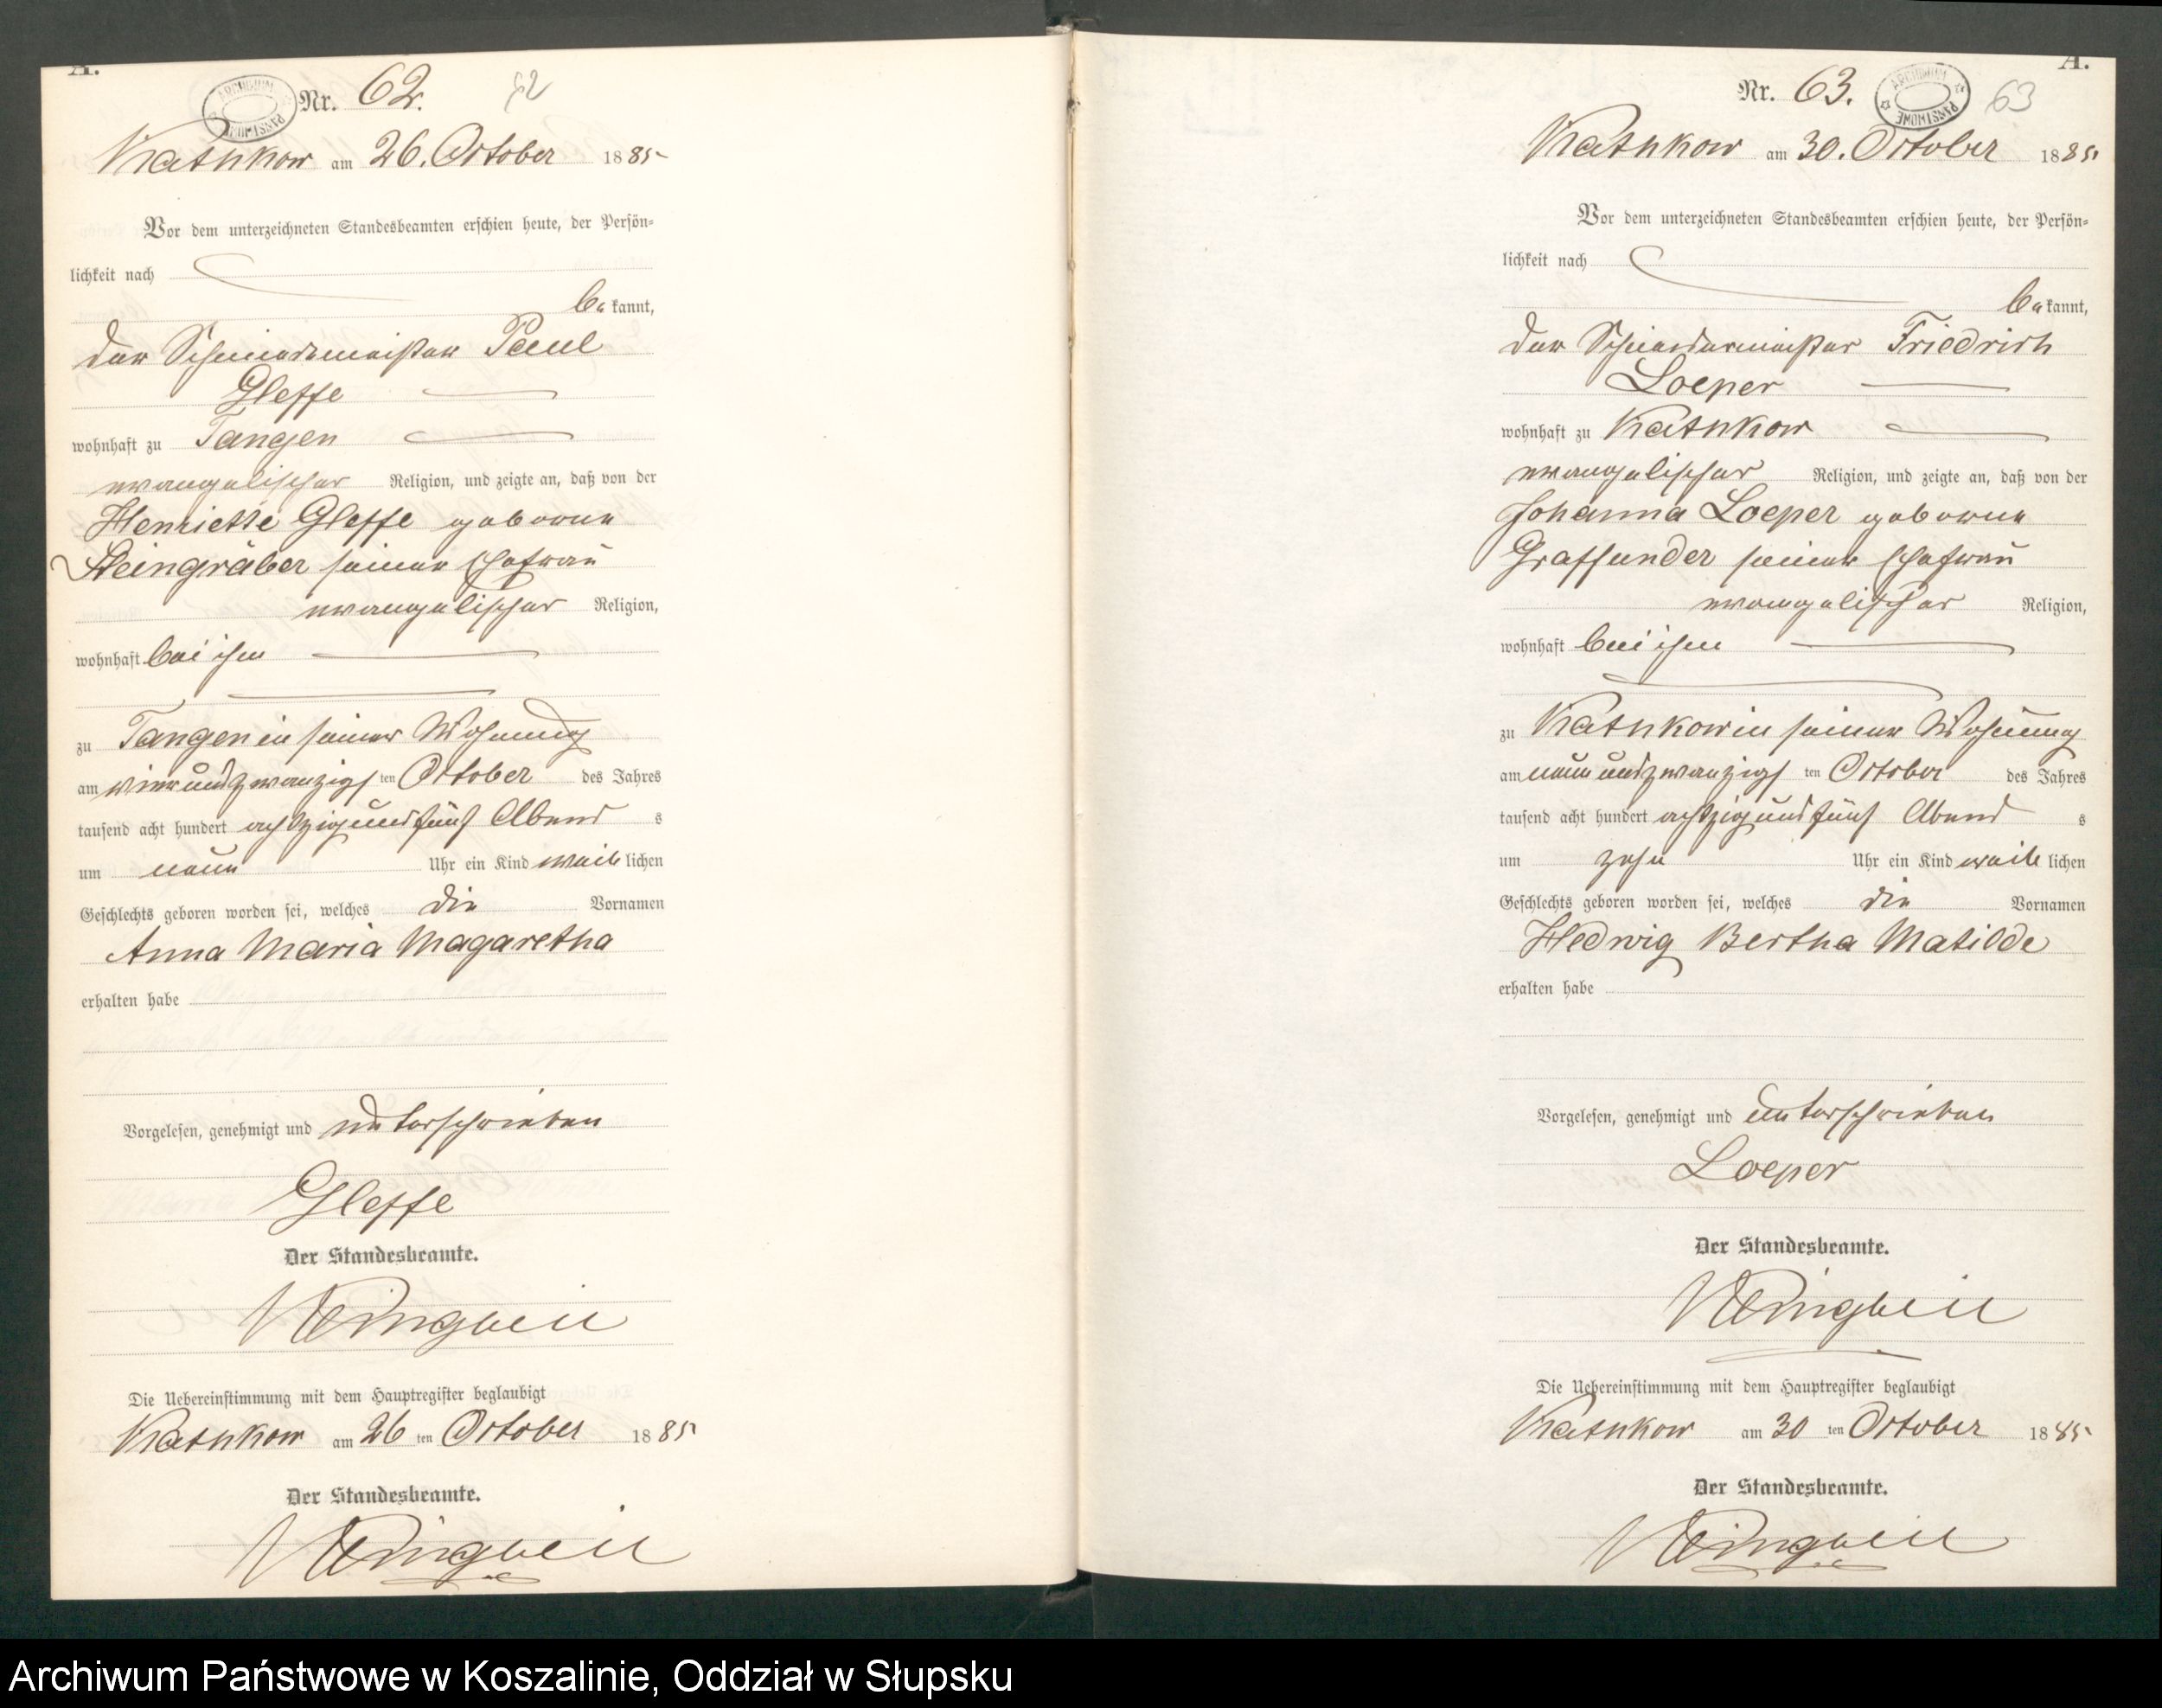 A.
Nr. 62. 62
ARCHIWUM PAŃSTWOWE
Kathkow am 26. October 1885
Vor dem unterzeichneten Standesbeamten erschien heute, der Persön=
lichkeit nach
be kannt,
der Schmiedemeister Paul
Gleffe
wohnhaft zu Tangen
evangelischer Religion, und zeigte an, daß von der
Henriette Gleffe geborene
Steingräber seiner Ehefrau
evangelischer Religion,
wohnhaft bei ihm
zu Tangen in seiner Wohnung
am vierundzwanzigs ten October des Jahres
tausend acht hundert achtzig und fünf Abend s
um neun Uhr ein Kind weib lichen
Geschlechts geboren worden sei, welches die Vornamen
Anna Maria Magaretha
erhalten habe
Vorgelesen, genehmigt und unterschrieben
Gleffe
Der Standesbeamte.
Die Uebereinstimmung mit dem Hauptregister beglaubigt
Kathkow am 26 ten October 1885
Der Standesbeamte.
A.
Nr. 63. 63
ARCHIWUM PAŃSTWOWE
Kathkow am 30. October 1885
Vor dem unterzeichneten Standesbeamten erschien heute, der Persön=
lichkeit nach
be kannt,
der Schneidermeister Friedrich
Loeper
wohnhaft zu Kathkow
evangelischer Religion, und zeigte an, daß von der
Johanna Loeper geborene
Graffunder seiner Ehefrau
evangelischer Religion,
wohnhaft bei ihm
zu Kathkow in seiner Wohnung
am neunundzwanzigs ten October des Jahres
tausend acht hundert achtzig und fünf Abend s
um zehn Uhr ein Kind weib lichen
Geschlechts geboren worden sei, welches die Vornamen
Hedwig Bertha Matilde
erhalten habe
Vorgelesen, genehmigt und unterschrieben
Loeper
Der Standesbeamte.
Die Uebereinstimmung mit dem Hauptregister beglaubigt
Kathkow am 30 ten October 1885
Der Standesbeamte.
Archiwum Państwowe w Koszalinie, Oddział w Słupsku